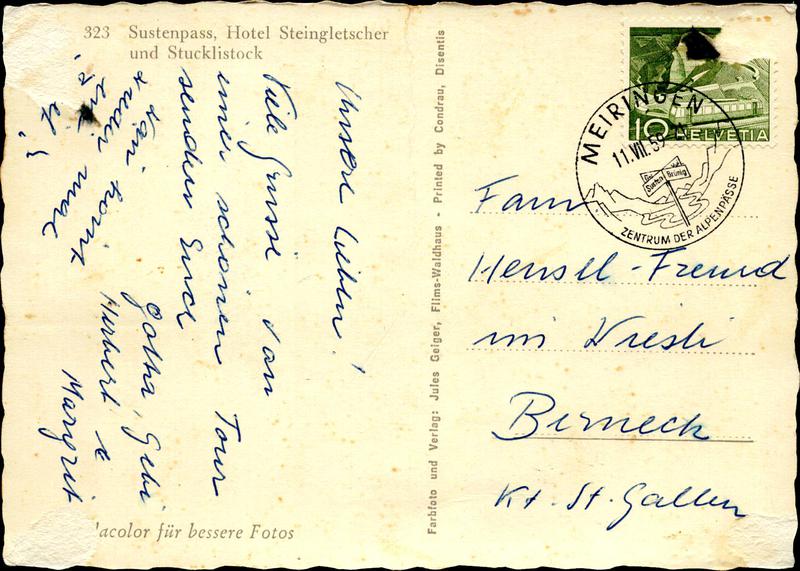 323 Sustenpass, Hotel Steingletscher
und Stucklistock
Unsere Lieben!
Viele Grüsse von
einer schönen Tour
senden Euch
Gotha, Gebi
Herbert &
Margrit
lacolor für bessere Fotos
Farbfoto und Verlag: Jules Geiger, Flims-Waldhaus - Printed by Condrau, Disentis
10 HELVETIA
MEIRINGEN
11.VII.59
Susten Brünig
ZENTRUM DER ALPENPÄSSE
Fam
Hensel-Freund
im Wiesli
Berneck
Kt. St. Gallen